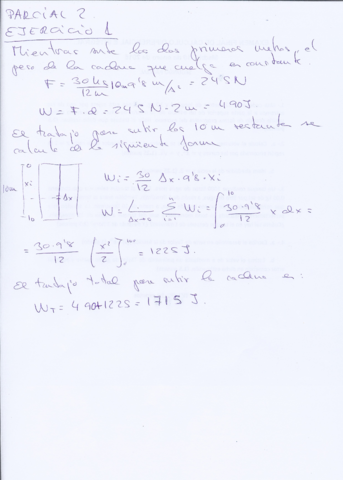 PARCIAL 2
EJERCICIO 1
Mientras sube los dos primeros metros, el
peso de la cadena que cuelga es constante
F = 30 kg/12m 10m 9'8 m/s² = 245 N
W = F·d = 245 N · 2 m = 490 J.
El trabajo para subir los 10 m restantes se
calcula de la siguiente forma
0
10m xi Δx
10
Wi = 30/12 Δx · 9'8 · xi
W = L Δx→0 Σ i=1 n Wi = ∫ 0 10 30·9'8/12 x dx =
= 30·9'8/12 [x²/2] 10 0 = 1225 J.
El trabajo total para subir la cadena es:
W_T = 490+1225 = 1715 J.